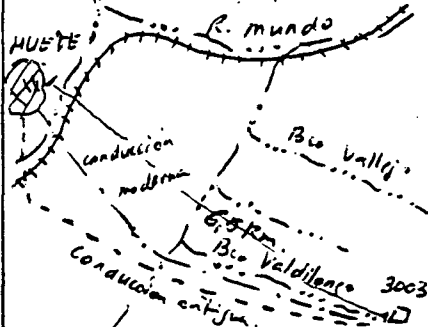 R. mundo
HUETE
conducción
moderna
Bco Vallejo
6,5 Km
Bco Valdilongo
3003
Conducción antigua.